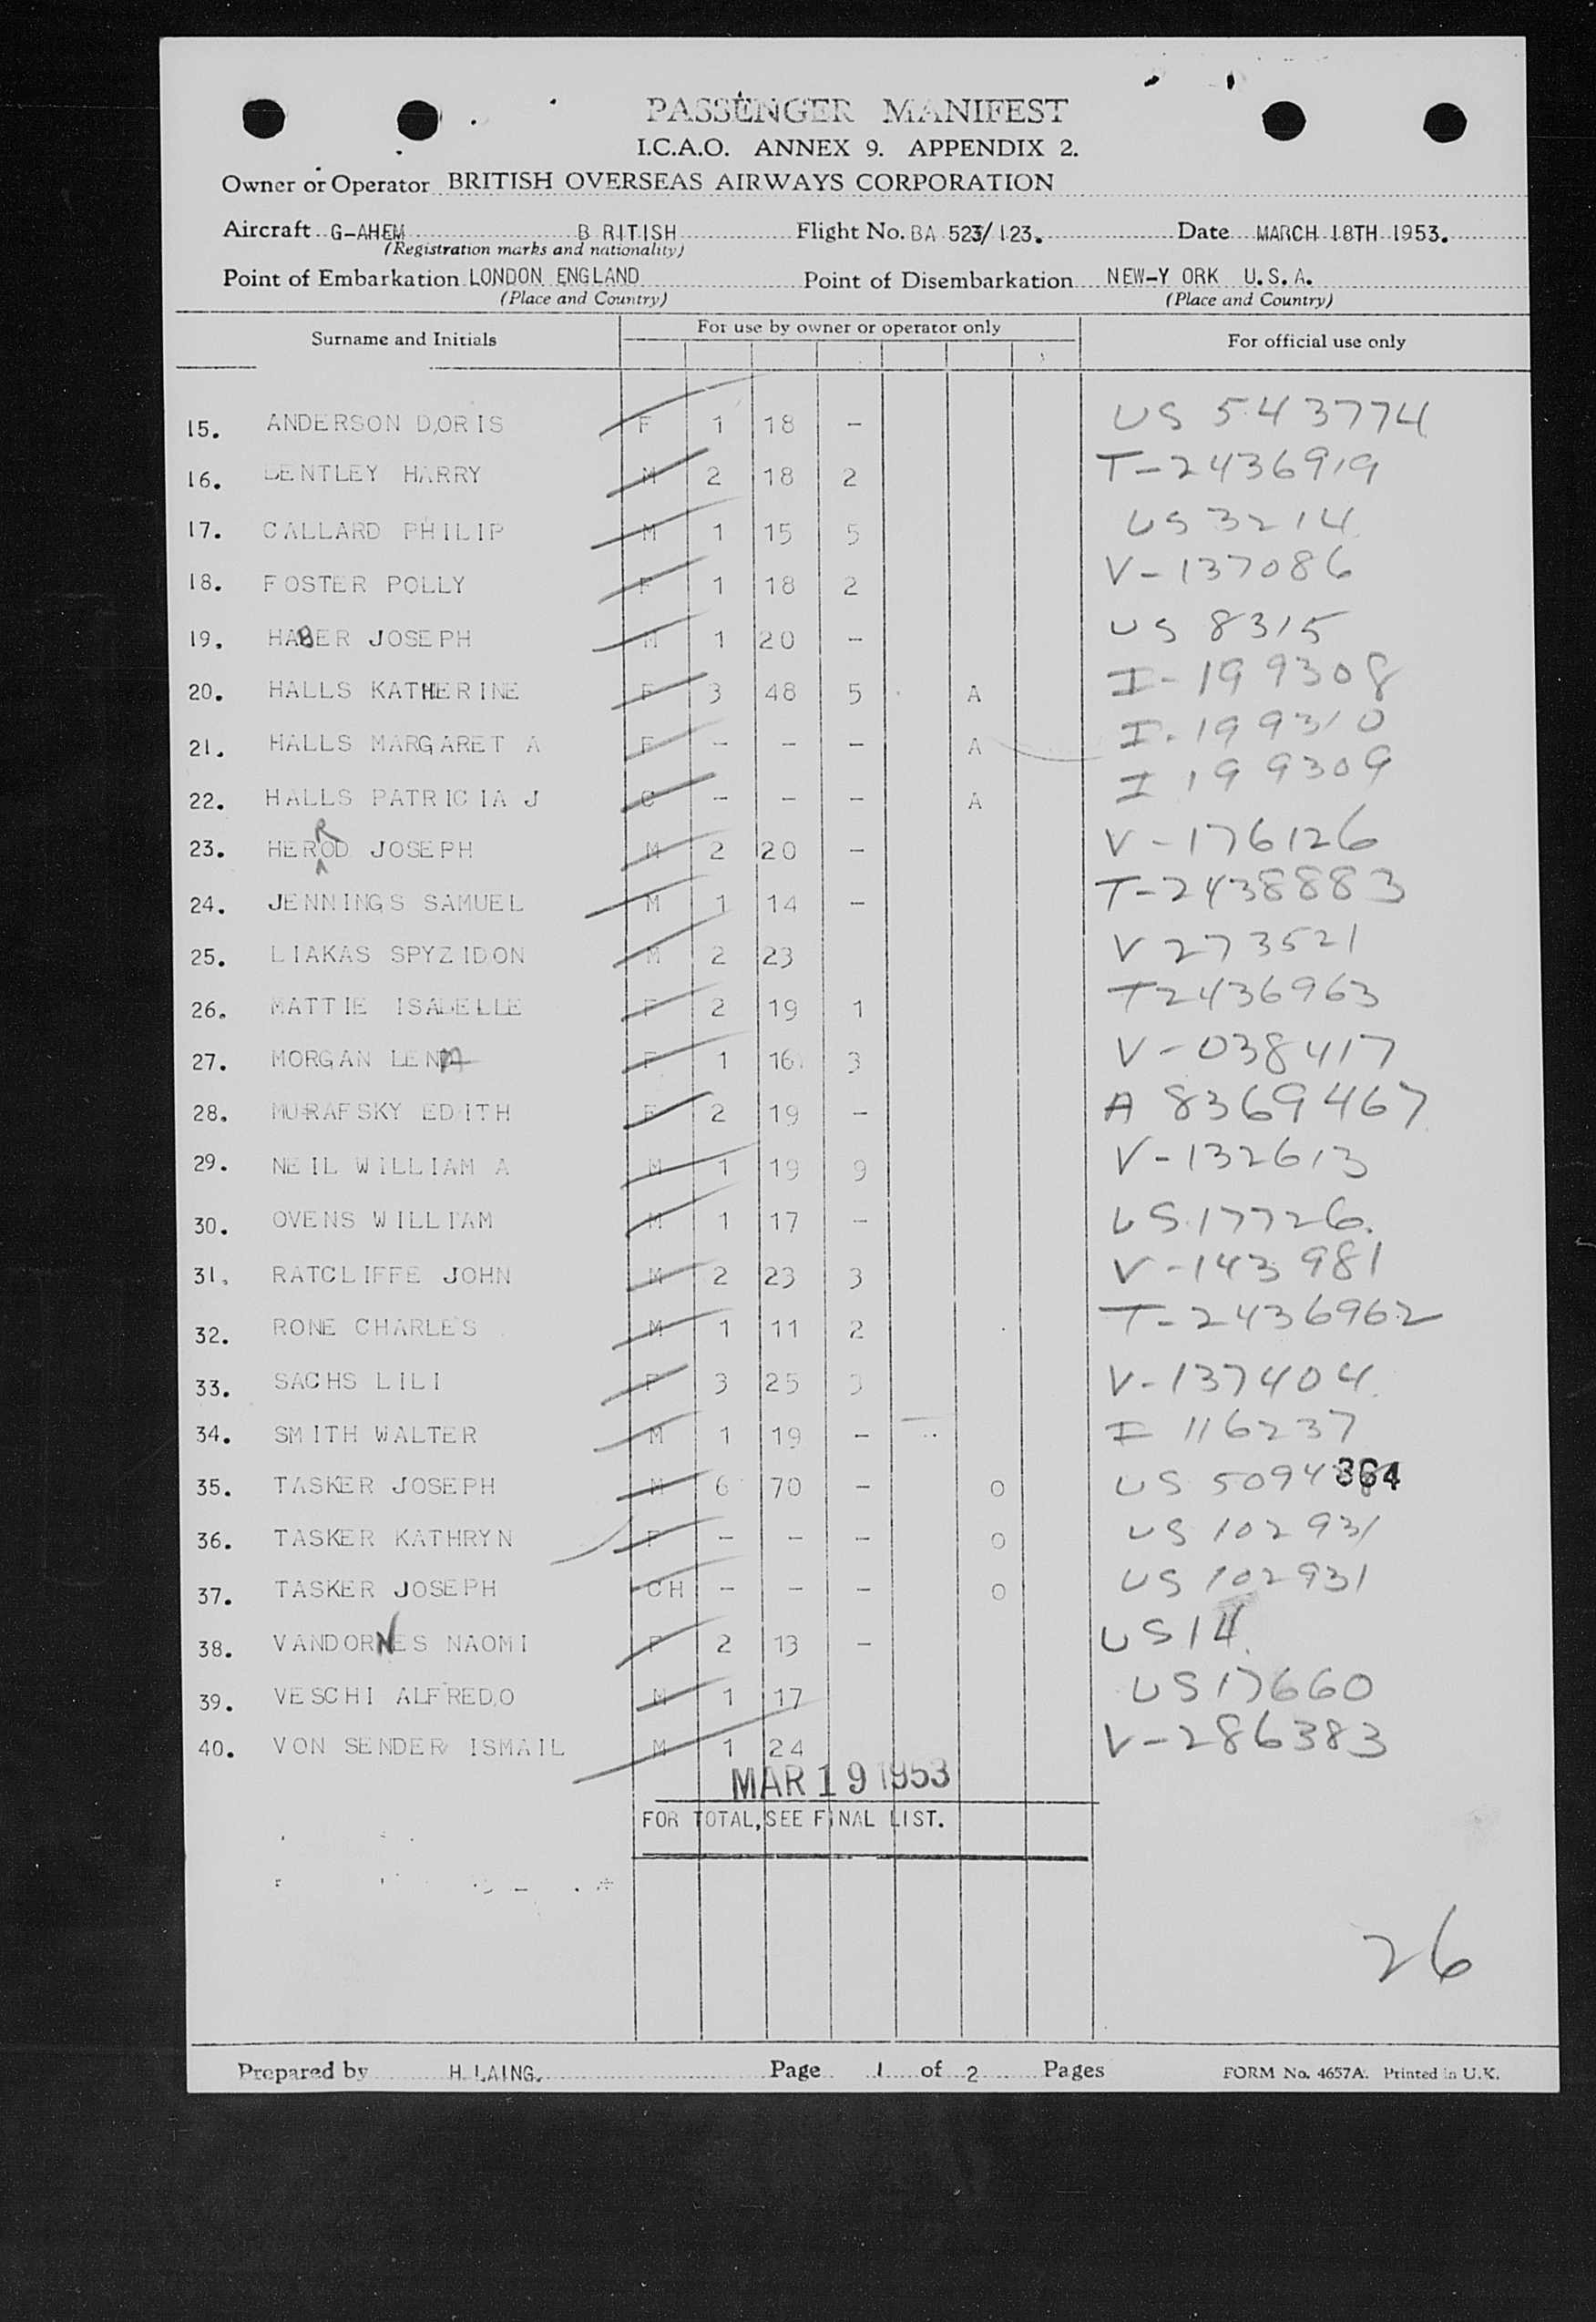 PASSENGER MANIFEST
I.C.A.O. ANNEX 9. APPENDIX 2.
Owner or Operator BRITISH OVERSEAS AIRWAYS CORPORATION
Aircraft G-AHEM B RITISH Flight No. BA 523/123. Date MARCH 18TH 1953.
(Registration marks and nationality)
Point of Embarkation LONDON ENGLAND Point of Disembarkation NEW-Y ORK U.S.A.
(Place and Country) (Place and Country)
Surname and Initials For use by owner or operator only For official use only
15. ANDERSON DORIS F 1 18 - US 543774
16. BENTLEY HARRY M 2 18 2 T-2436919
17. CALLARD PHILIP M 1 15 5 US 3214
18. FOSTER POLLY F 1 18 2 V-137086
19. HABER JOSEPH M 1 20 - US 8315
20. HALLS KATHERINE F 3 48 5 A I-199308
21. HALLS MARGARET A F - - - A I-199310
22. HALLS PATRICIA J C - - - A I 199309
23. HERROD JOSEPH M 2 20 - V-176126
24. JENNINGS SAMUEL M 1 14 - T-2438883
25. LIAKAS SPYZIDON M 2 23 V 273521
26. MATTIE ISABELLE F 2 19 1 T2436963
27. MORGAN LENA F 1 16 3 V-038417
28. MURAFSKY EDITH F 2 19 - A 8369467
29. NEIL WILLIAM A M 1 19 9 V-132613
30. OVENS WILLIAM M 1 17 - US 17726.
31. RATCLIFFE JOHN M 2 23 3 V-143981
32. RONE CHARLES M 1 11 2 T-2436962
33. SACHS LILI F 3 25 3 V-137404
34. SMITH WALTER M 1 19 - I 116237
35. TASKER JOSEPH M 6 70 - O US 364
36. TASKER KATHRYN F - - - O US 102931
37. TASKER JOSEPH CH - - - O US 102931
38. VANDORNES NAOMI F 2 13 - US 14
39. VESCHI ALFREDO M 1 17 US 17660
40. VON SENDER ISMAIL M 1 24 V-286383
MAR 19 1953
FOR TOTAL, SEE FINAL LIST.
26
Prepared by H.LAING. Page 1 of 2 Pages FORM No. 4657A. Printed in U.K.